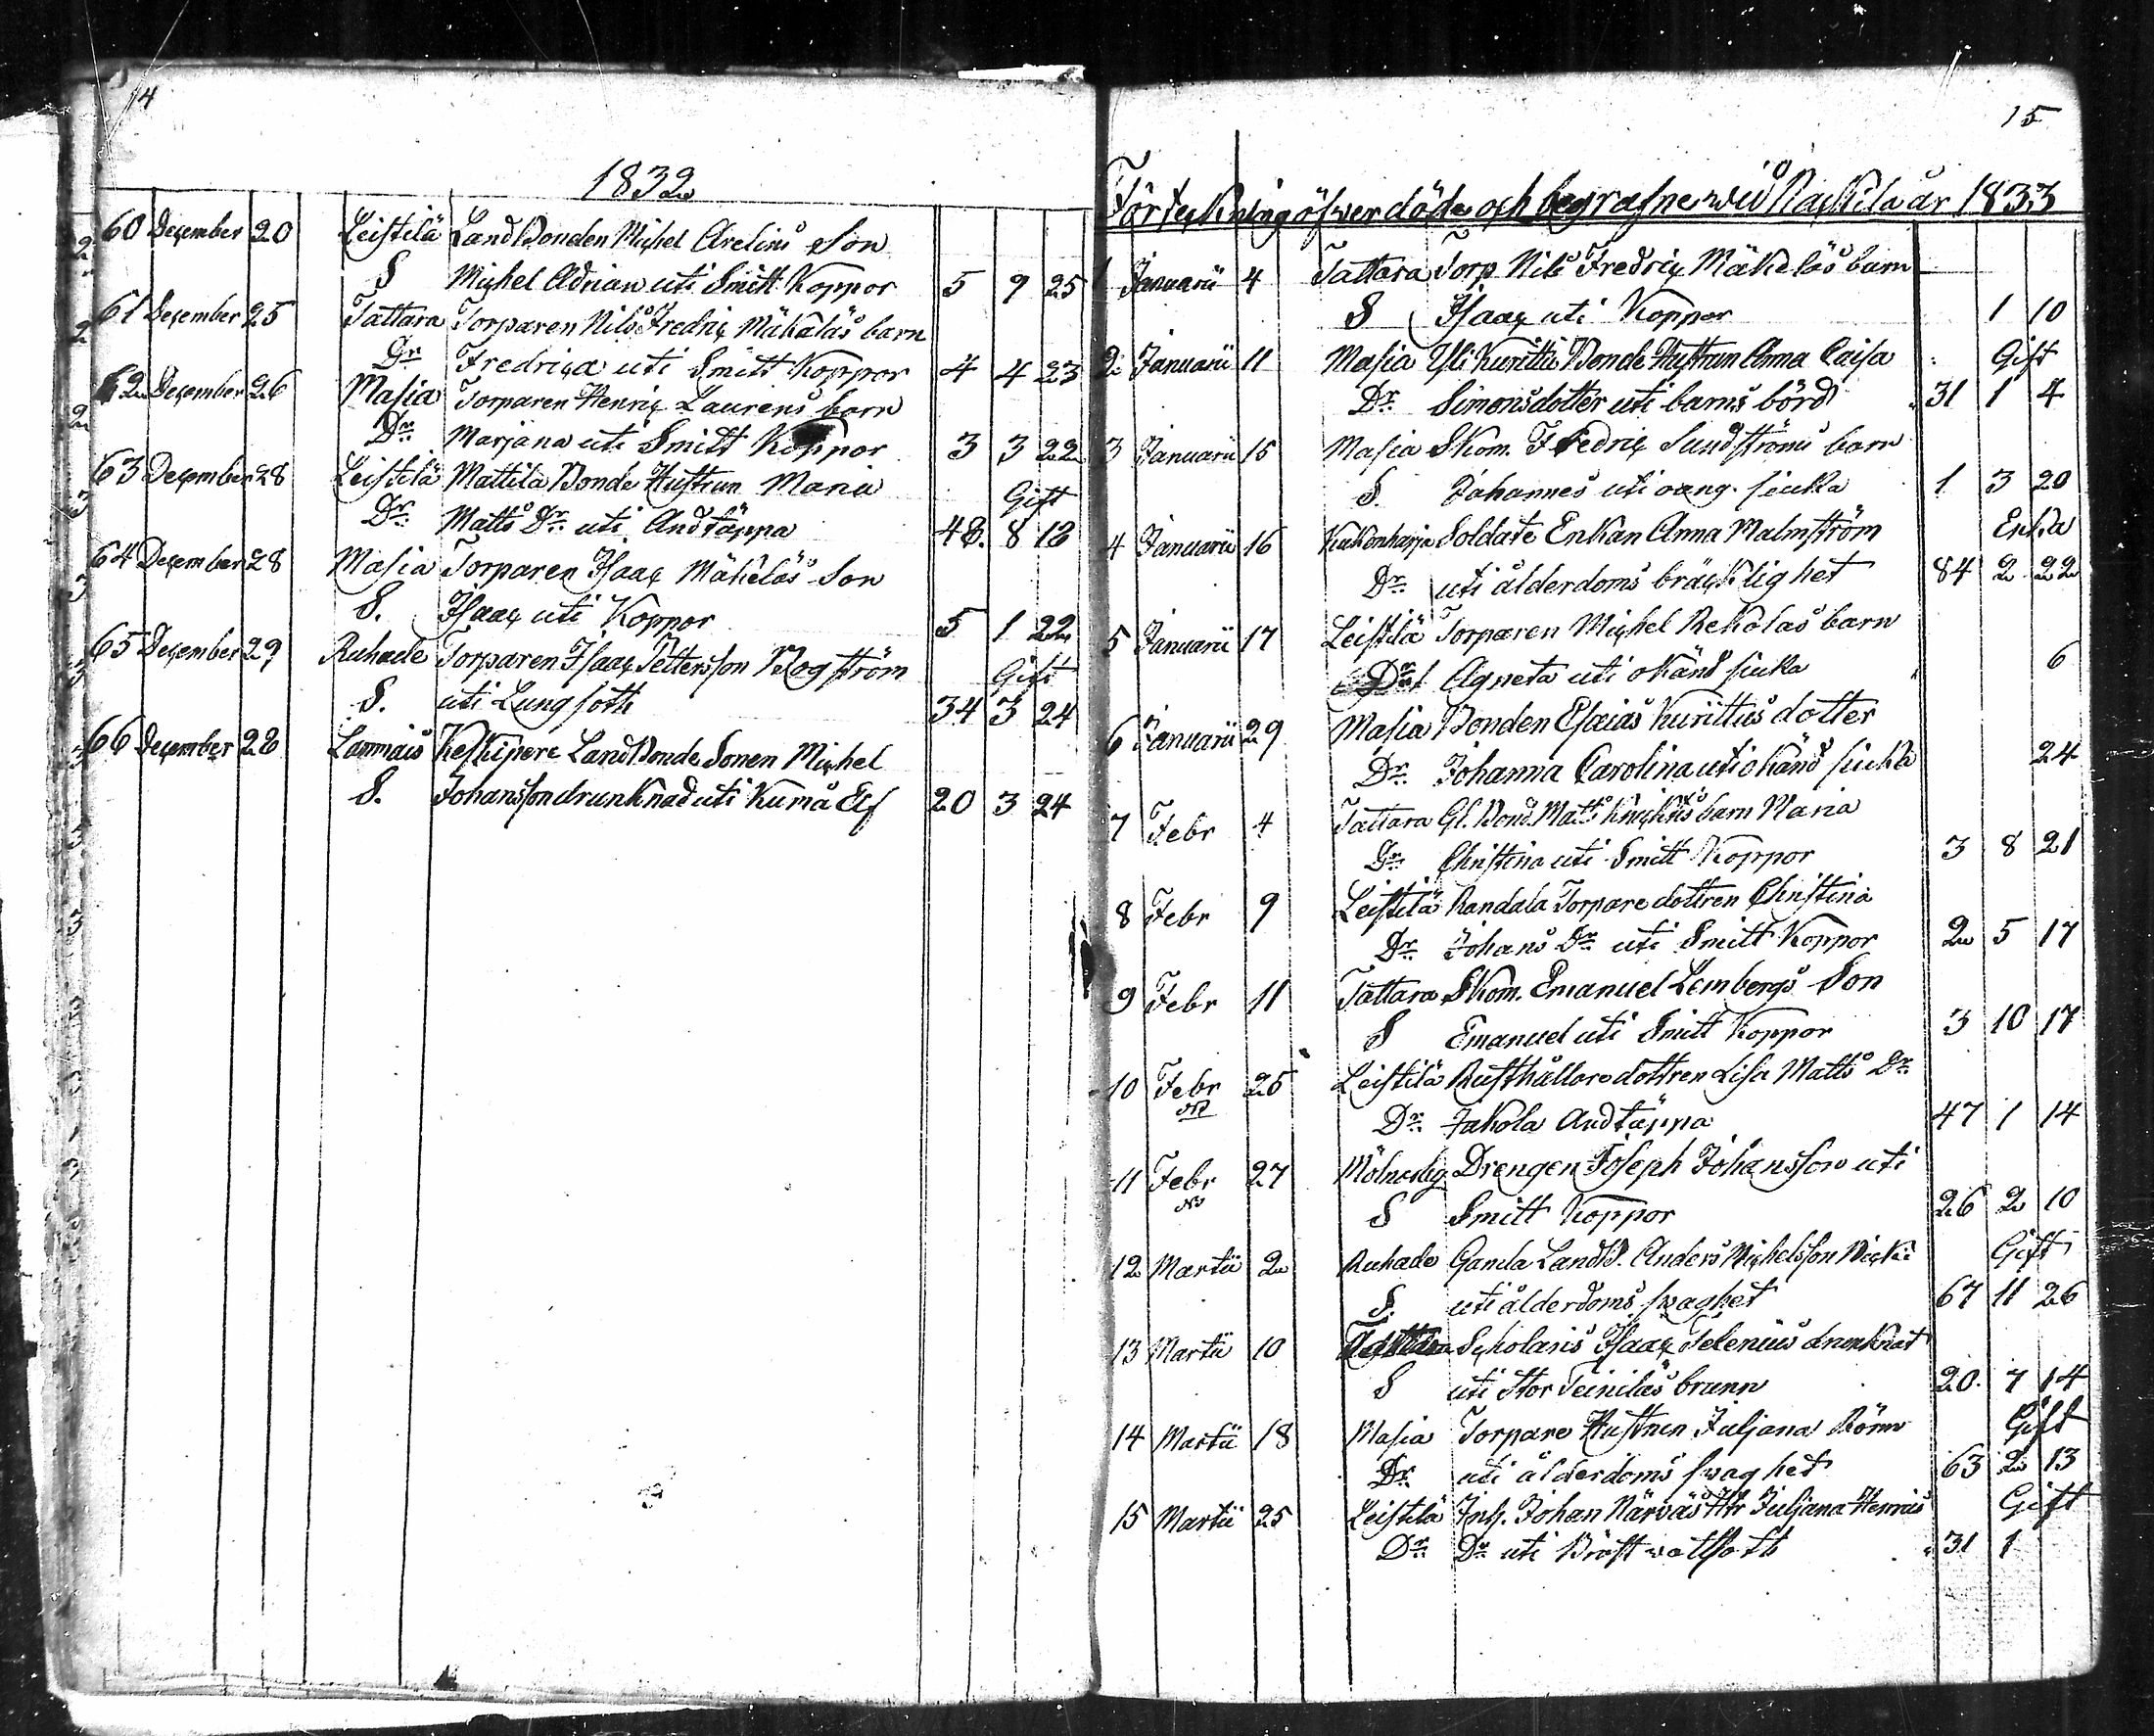 14
1832
60 December 20 Leistilä LandBonden Michel Arelins Son
S Michel Adrian uti Smitt Koppor 5 9 25
61 December 25 Tattara Torparen Nils Fredric Mäkeläs barn
Dr Fredrica uti Smitt Koppor 4 4 23
62 December 26 Masia Torparen Henric Laurens barn
Dr Marjana uti Smitt Koppor 3 3 22
63 December 28 Leistilä Mattila Bonde Hustrun Maria Gift
Dr. Matts Dr. uti Andtäppa 48. 8 18
64 December 28 Masia Torparen Isaac Mäkeläs Son
S. Isaac uti Koppor 5 1 22
65 December 29 Ruhade Torparen Isaac Pettersson Bogström Gift
S. uti Lungsoth 34 3 24
66 December 28 Lammais Keskipere LandBonde Sonen Michel
S. Johansson drunknad uti Kumå Elf 20 3 24
15
Förteckning öfwer döde och begrafne wid Kackila år 1833
1 Januarii 4 Tattara Torp. Nils Fredric Mäkeläs barn
S Isaac uti Koppor 1 10
2 Januarii 11 Masia Yli Kurittu Bonde Hustrun Anna Caisa Gift
Dr. Simonsdotter uti barns börd 31 1 4
3 Januarii 15 Masia Skom. Fredric Sundströms barn
S. Johannes uti oang. siuka 1 3 20
4 Januarii 16 Kukonharja Soldate Enkan Anna Malmström Enka
Dr. uti ålderdoms bräcklighet 84 2 22
5 Januarii 17 Leistilä Torparen Michel Rekolas barn
Dr Agneta uti okänd siuka 6
6 Januarii 29 Masia Bonden Esaias Kurittus dotter
Dr. Johanna Carolina uti okänd siuka 24
7 Febr 4 Tattara Gl. Bond. Matts barn Maria
Dr. Christina uti Smitt Koppor 3 8 21
8 Febr 9 Leistilä Randala Torpare dottren Christina
Dr. Johans Dr uti Smitt Koppor 2 5 17
9 Febr 11 Tattara Skom. Emanuel Lembergs Son
S Emanuel uti Smitt Koppor 3 10 17
10 Febr 25 Leistilä Rusthållare dottren Lisa Matts Dr.
Dr. Jakola Andtäppa 47 1 14
11 Febr 27 Drengen Joseph Johansson uti
S Smitt Koppor 26 2 10
12 Martii 2 Ruhade Gamla LandB. Anders Michelsson Gift
S. uti ålderdoms swaghet 67 11 26
13 Martii 10 Scholaris Isaac Selenius drunknat
S uti Stor Teiniläs brunn 20. 7 14
14 Martii 18 Masia Torpare Hustrun Juljana Röm Gift
Dr. uti ålderdoms swaghet 63 2 13
15 Martii 25 Leistilä Inh. Johan Närväs Htr Juljana Henrics Gift
Dr. Dr uti Bröst wattsoth 31 1